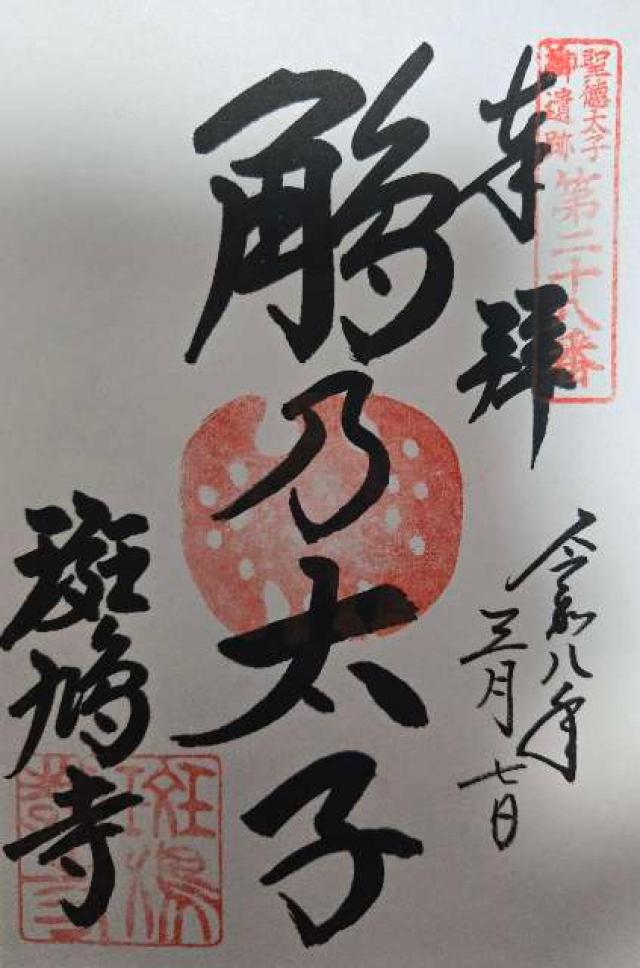 聖徳太子
御遺跡
第二十八番
奉拝
令和八年
三月七日
鵤乃太子
斑鳩寺
斑鳩